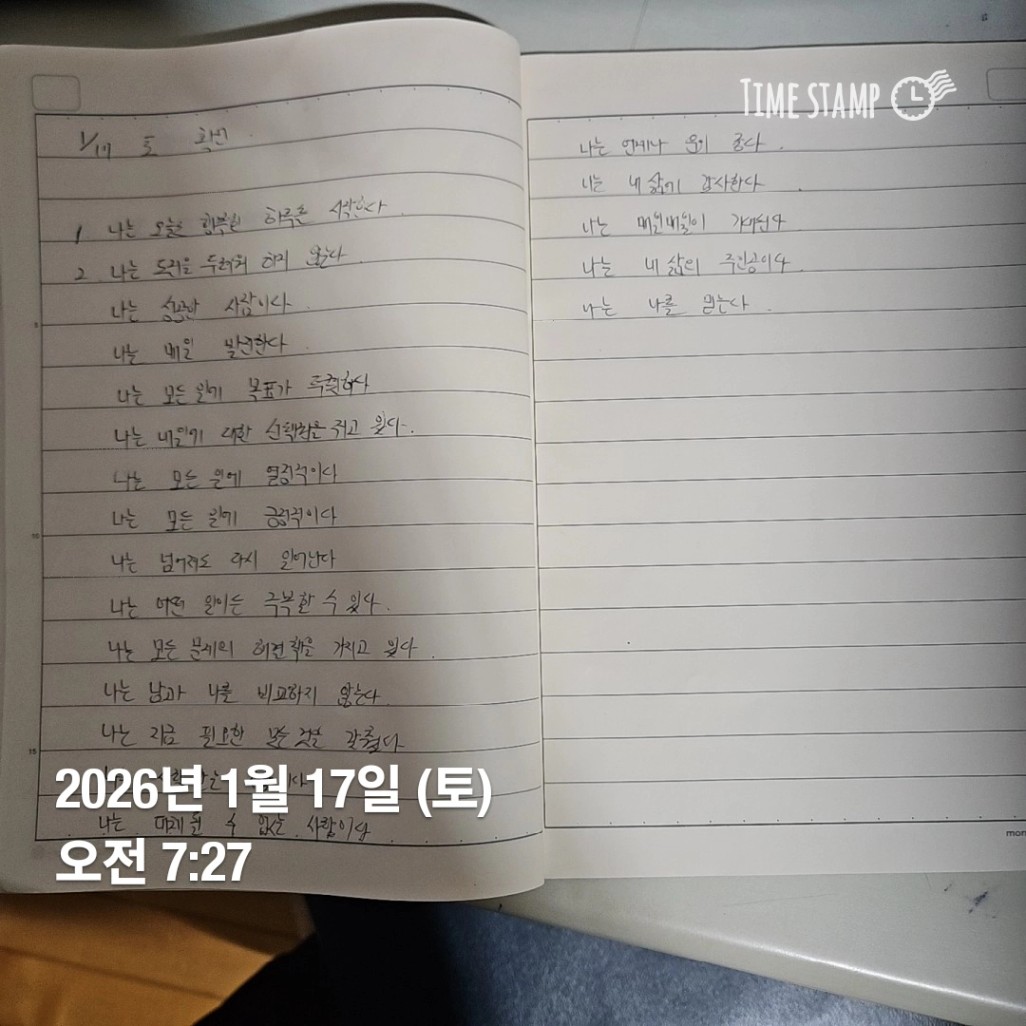 TIME STAMP
1/17 토 확언
1 나는 오늘도 행복한 하루를 시작한다
2. 나는 도전을 두려워 하지 않는다
나는 성공한 사람이다
나는 매일 발전한다
나는 모든 일에 목표가 뚜렷하다
나는 내일에 대한 선택권을 쥐고 있다.
나는 모든 일에 열정적이다
나는 모든 일에 긍정적이다
나는 넘어져도 다시 일어난다
나는 어떤 일이든 극복할 수 있다.
나는 모든 문제의 해결책을 가지고 있다.
나는 남과 나를 비교하지 않는다
나는 지금 필요한 모든 것을 갖췄다
나는 대체될 수 없는 사람이다
나는 언제나 운이 좋다.
나는 내 삶에 감사한다.
나는 매일매일이 기대된다
나는 내 삶의 주인공이다.
나는 나를 믿는다.
2026년 1월 17일 (토)
오전 7:27